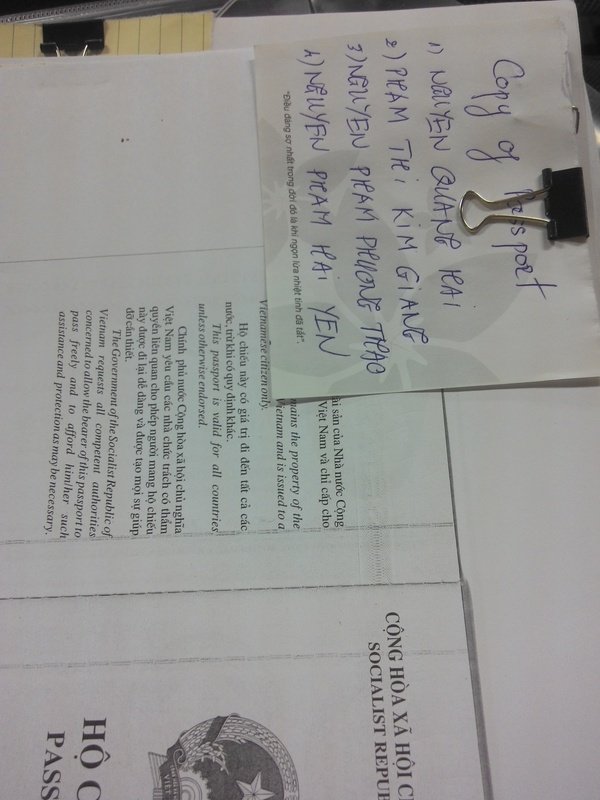 Copy of Passport
1) NGUYEN QUANG HAI
2) PHAM THI KIM GIANG
3) NGUYEN PHAM PHUONG THAO
4) NGUYEN PHAM HAI YEN
"Điều đáng sợ nhất trong đời đó là khi ngọn lửa nhiệt tình đã tắt".
ài sản của Nhà nước Cộng
Việt Nam và chỉ cấp cho
mains the property of the
Vietnam and is issued to a
Vietnamese citizen only.
Hộ chiếu này có giá trị đi đến tất cả các
nước, trừ khi có quy định khác.
This passport is valid for all countries
unless otherwise endorsed.
Chính phủ nước Cộng hòa xã hội chủ nghĩa
Việt Nam yêu cầu các nhà chức trách có thẩm
quyền liên quan cho phép người mang hộ chiếu
này được đi lại dễ dàng và được tạo mọi sự giúp
đỡ cần thiết.
The Government of the Socialist Republic of
Vietnam requests all competent authorities
concerned to allow the bearer of this passport to
pass freely and to afford him/her such
assistance and protection as may be necessary.
CỘNG HÒA XÃ HỘI C
SOCIALIST REPU
VIỆT
HỘ C
PASS